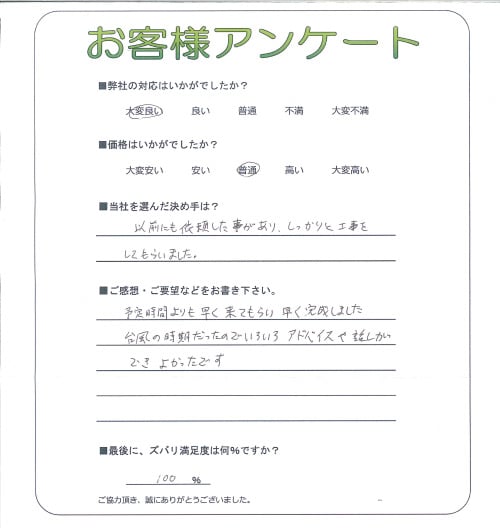 お客様アンケート
■弊社の対応はいかがでしたか？
大変良い 良い 普通 不満 大変不満
■価格はいかがでしたか？
大変安い 安い 普通 高い 大変高い
■当社を選んだ決め手は？
以前にも依頼した事があり、しっかりと工事を
してもらいました。
■ご感想・ご要望などをお書き下さい。
予定時間よりも早く来てもらい 早く完成しました
台風の時期だったのでいろいろ アドバイスや 話しが
でき よかったです
■最後に、ズバリ満足度は何％ですか？
100 ％
ご協力頂き、誠にありがとうございました。